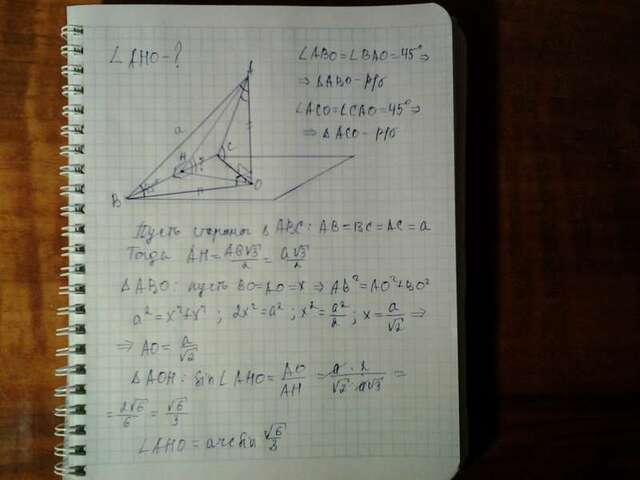 ∠AHO - ?
∠ABO = ∠BAO = 45° ⇒
⇒ △ABO - р/б
∠ACO = ∠CAO = 45° ⇒
⇒ △ACO - р/б
A
a
C
H
?
O
B
Пусть стороны △ABC: AB = BC = AC = a
Тогда AH = AB√3/2 = a√3/2
△ABO: пусть BO = AO = x ⇒ AB² = AO² + BO²
a² = x² + x² ; 2x² = a² ; x² = a²/2 ; x = a/√2 ⇒
⇒ AO = a/√2
△AOH: sin∠AHO = AO/AH = a · 2/√2 · a√3 =
= 2√6/6 = √6/3
∠AHO = arcsin √6/3